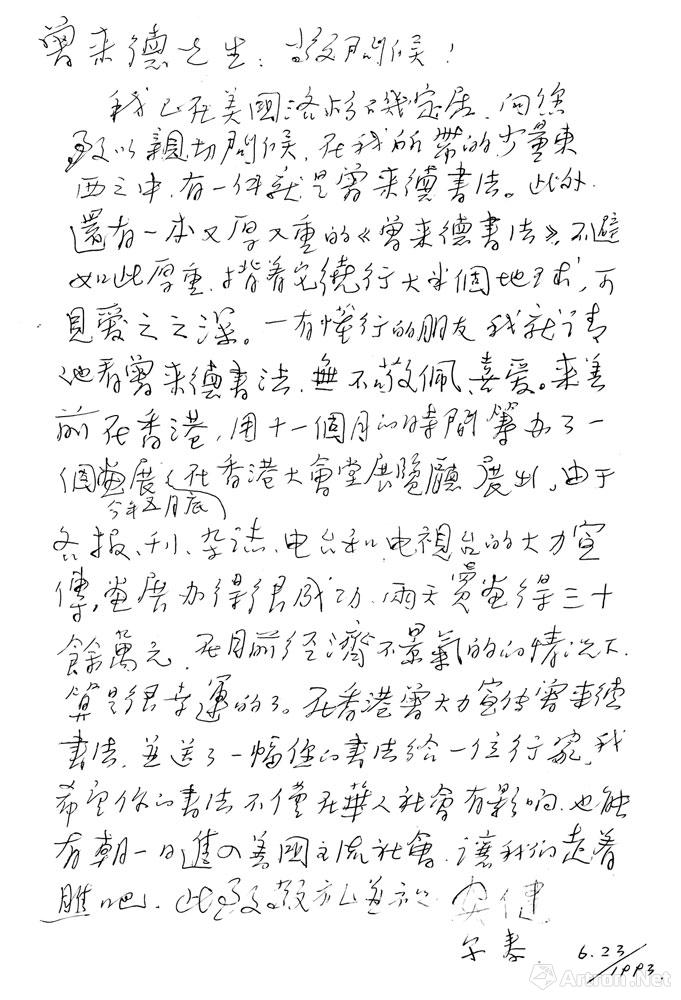 曾来德先生：敬问候！
我已在美國洛杉磯定居，向您
致以親切問候，在我所带的少量東
西之中，有一件就是曾来德書法。此外，
還有一本又厚又重的《曾来德書法》，不避
如此厚重，揹着它繞行大半個地球，可
見爱之之深。一有懂行的朋友我就请
他看曾来德書法，無不敬佩、喜爱。来美
前在香港，用十一個月的時間籌办了一
個畫展，在香港大會堂展覽廳展出，由于
今年五月底
各报、刊、杂誌、电台和电視台的大力宣
傳，畫展办得很成功，兩天賣畫得三十
餘萬元，在目前经濟不景氣的的情况下，
算是很幸運的了。在香港曾大力宣传曾来德
書法，并送了一幅您的書法给一位行家，我
希望你的書法不僅在華人社會有影响，也能
有朝一日進入美國主流社會，讓我们走着
瞧吧。此致敬礼并祝 安健
6.23/1993.
Artron.Net